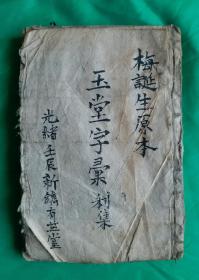 梅誕生原本
玉堂字彙
光緒壬辰新鐫有益堂